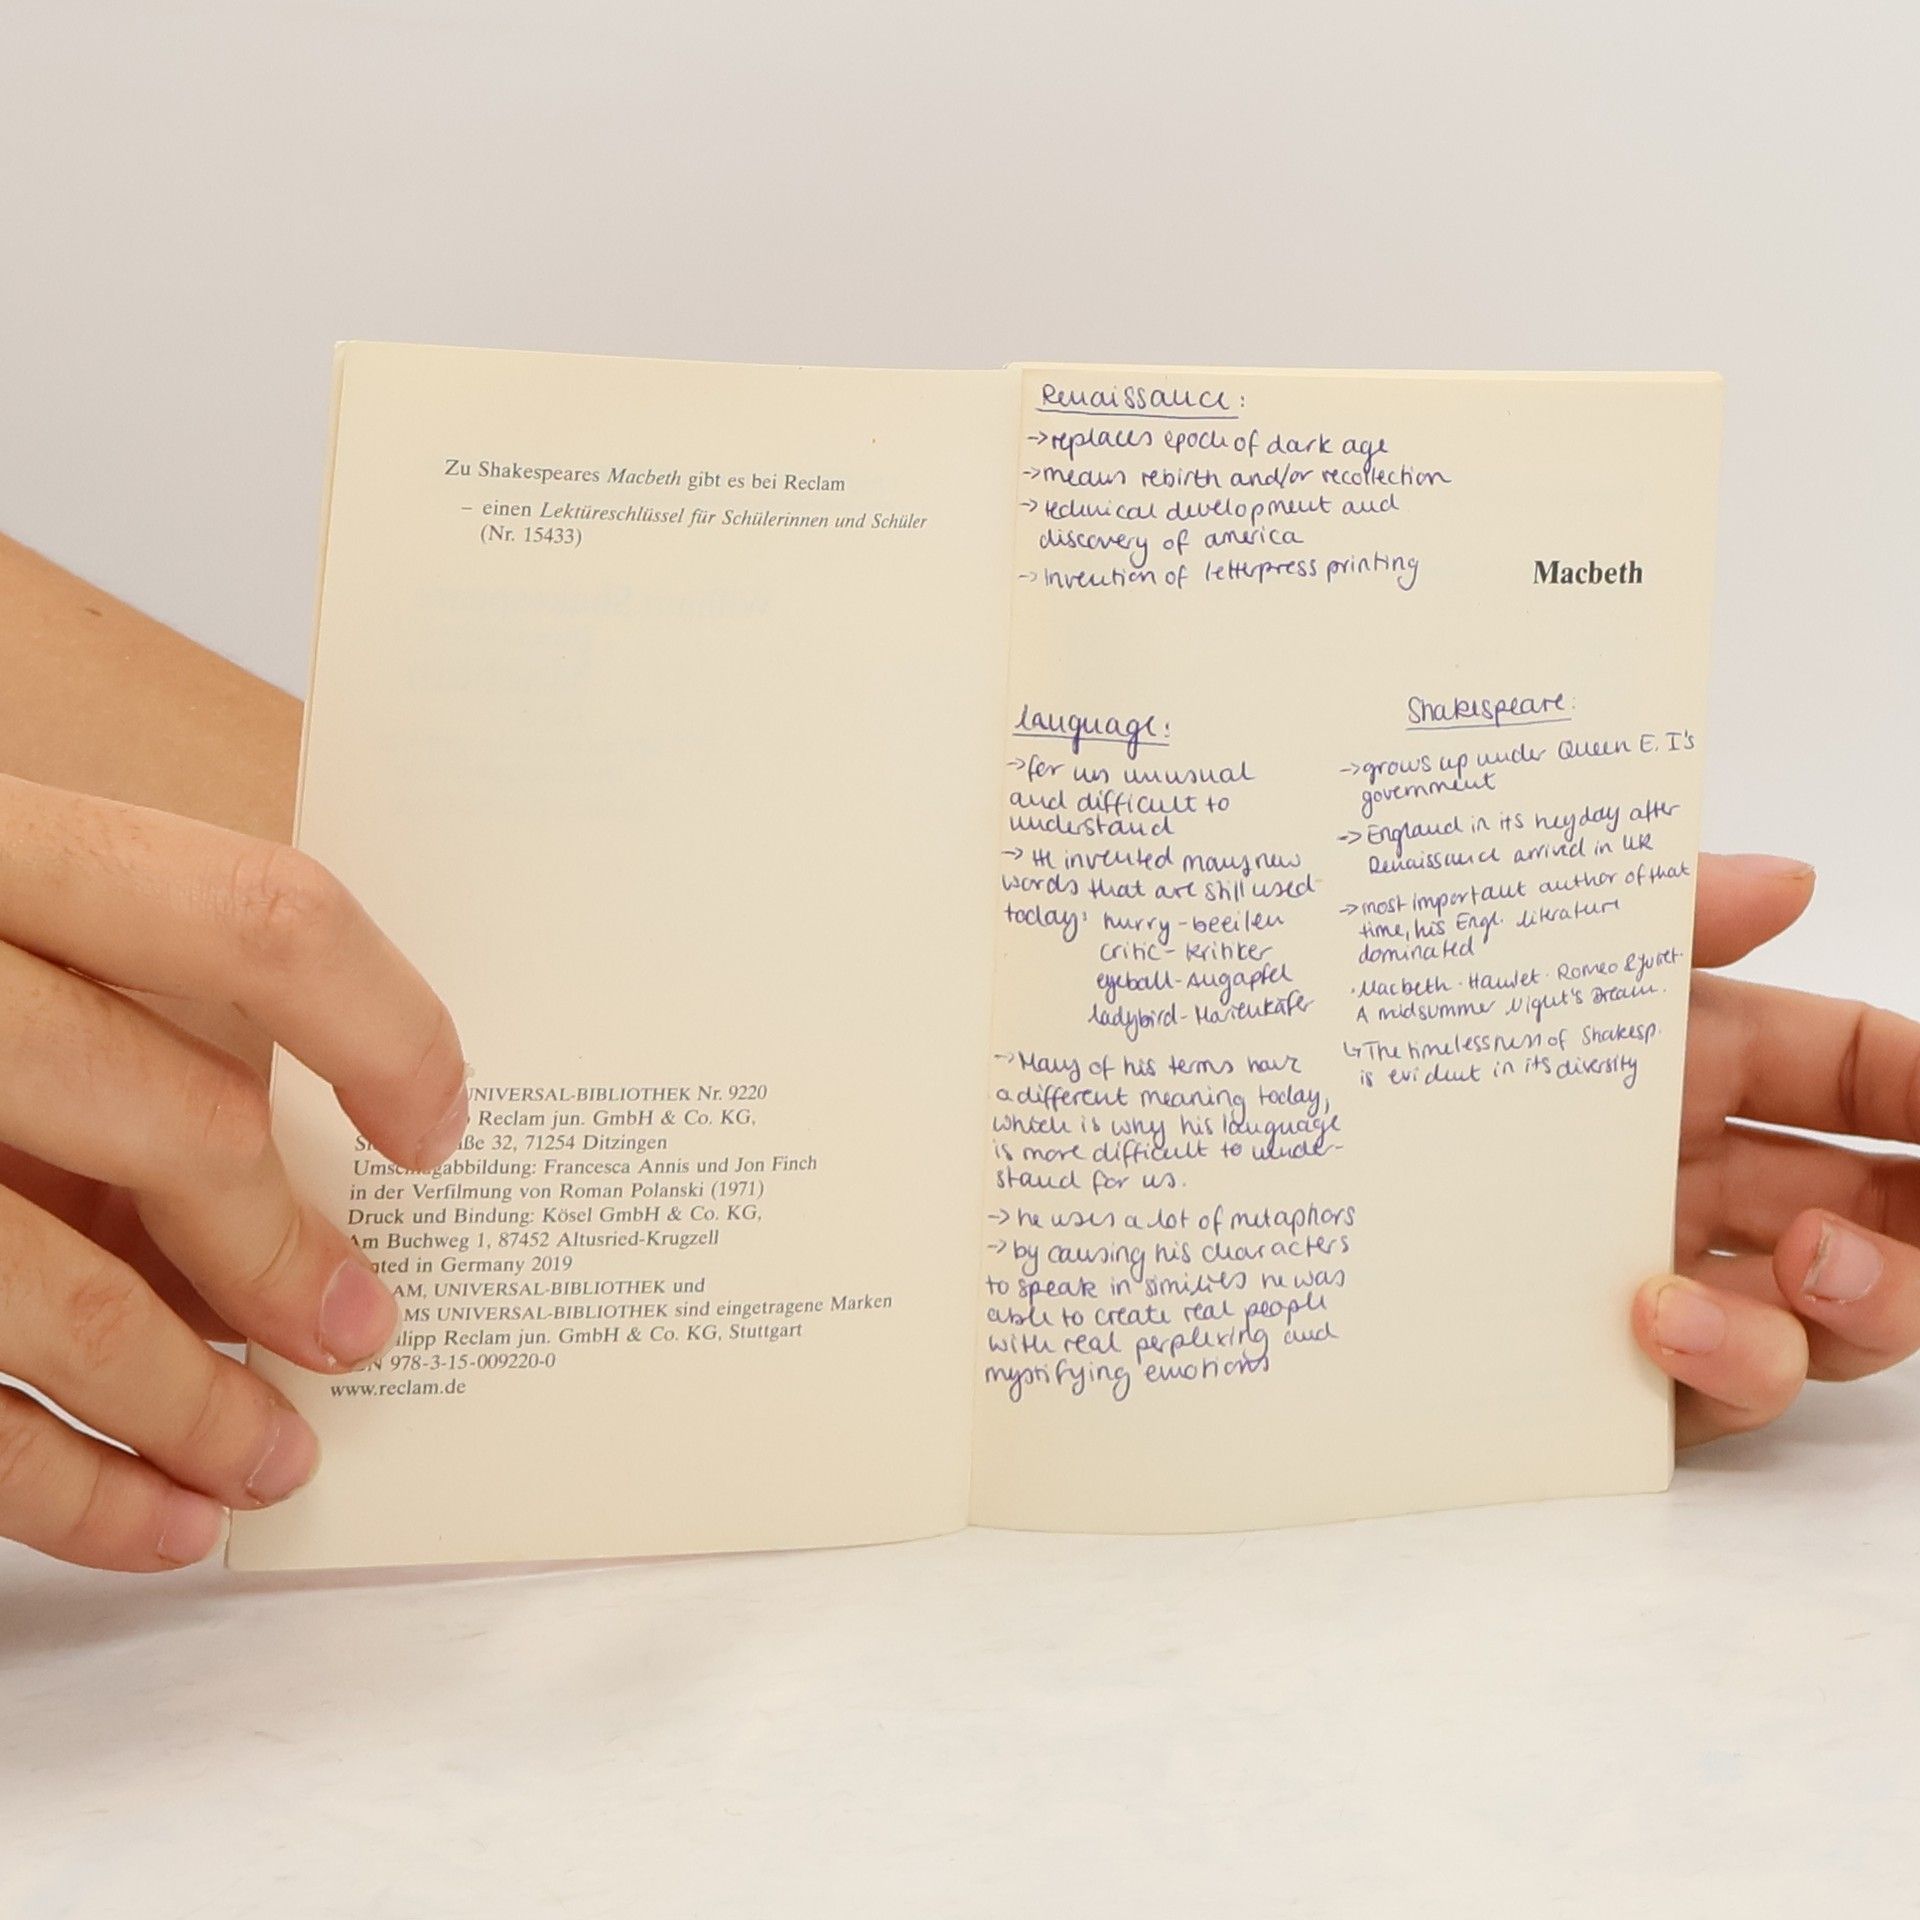 Zu Shakespeares Macbeth gibt es bei Reclam
– einen Lektüreschlüssel für Schülerinnen und Schüler
(Nr. 15433)
UNIVERSAL-BIBLIOTHEK Nr. 9220
Reclam jun. GmbH & Co. KG,
32, 71254 Ditzingen
Francesca Annis und Jon Finch
in der Verfilmung von Roman Polanski (1971)
Druck und Bindung: Kösel GmbH & Co. KG,
Am Buchweg 1, 87452 Altusried-Krugzell
in Germany 2019
UNIVERSAL-BIBLIOTHEK und
UNIVERSAL-BIBLIOTHEK sind eingetragene Marken
Reclam jun. GmbH & Co. KG, Stuttgart
978-3-15-009220-0
www.reclam.de
Renaissance:
->replaces epoch of dark age
->means rebirth and/or recollection
->technical development and
discovery of america
->invention of letterpress printing
Macbeth
language:
->for us unusual
and difficult to
understand
->He invented many new
words that are still used
today: hurry-beeilen
critic-Kritiker
eyeball-Augapfel
ladybird-Marienkäfer
->Many of his terms have
a different meaning today,
which is why his language
is more difficult to under-
stand for us.
->he uses a lot of metaphors
->by causing his characters
to speak in similies he was
able to create real people
with real perplexing and
mystifying emotions
Shakespeare:
->grows up under Queen E. I's
government
->England in its heyday after
Renaissance arrived in UK
->most important author of that
time, his Engl. literature
dominated
·Macbeth·Hamlet·Romeo & Juliet·
A midsummer Night's Dream.
↳The timelessness of Shakesp.
is evident in its diversity